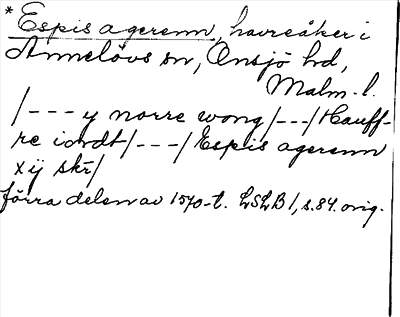 * Espis agerenn, havreåker i
Annelövs sn, Onsjö hd,
Malm. l.
/ - - - y norre wong / - - - / Hauff-
re iordt / - - - / Espis agerenn
x ij skr̄ /
förra delen av 1570-t. LSLB 1, s. 84. orig.